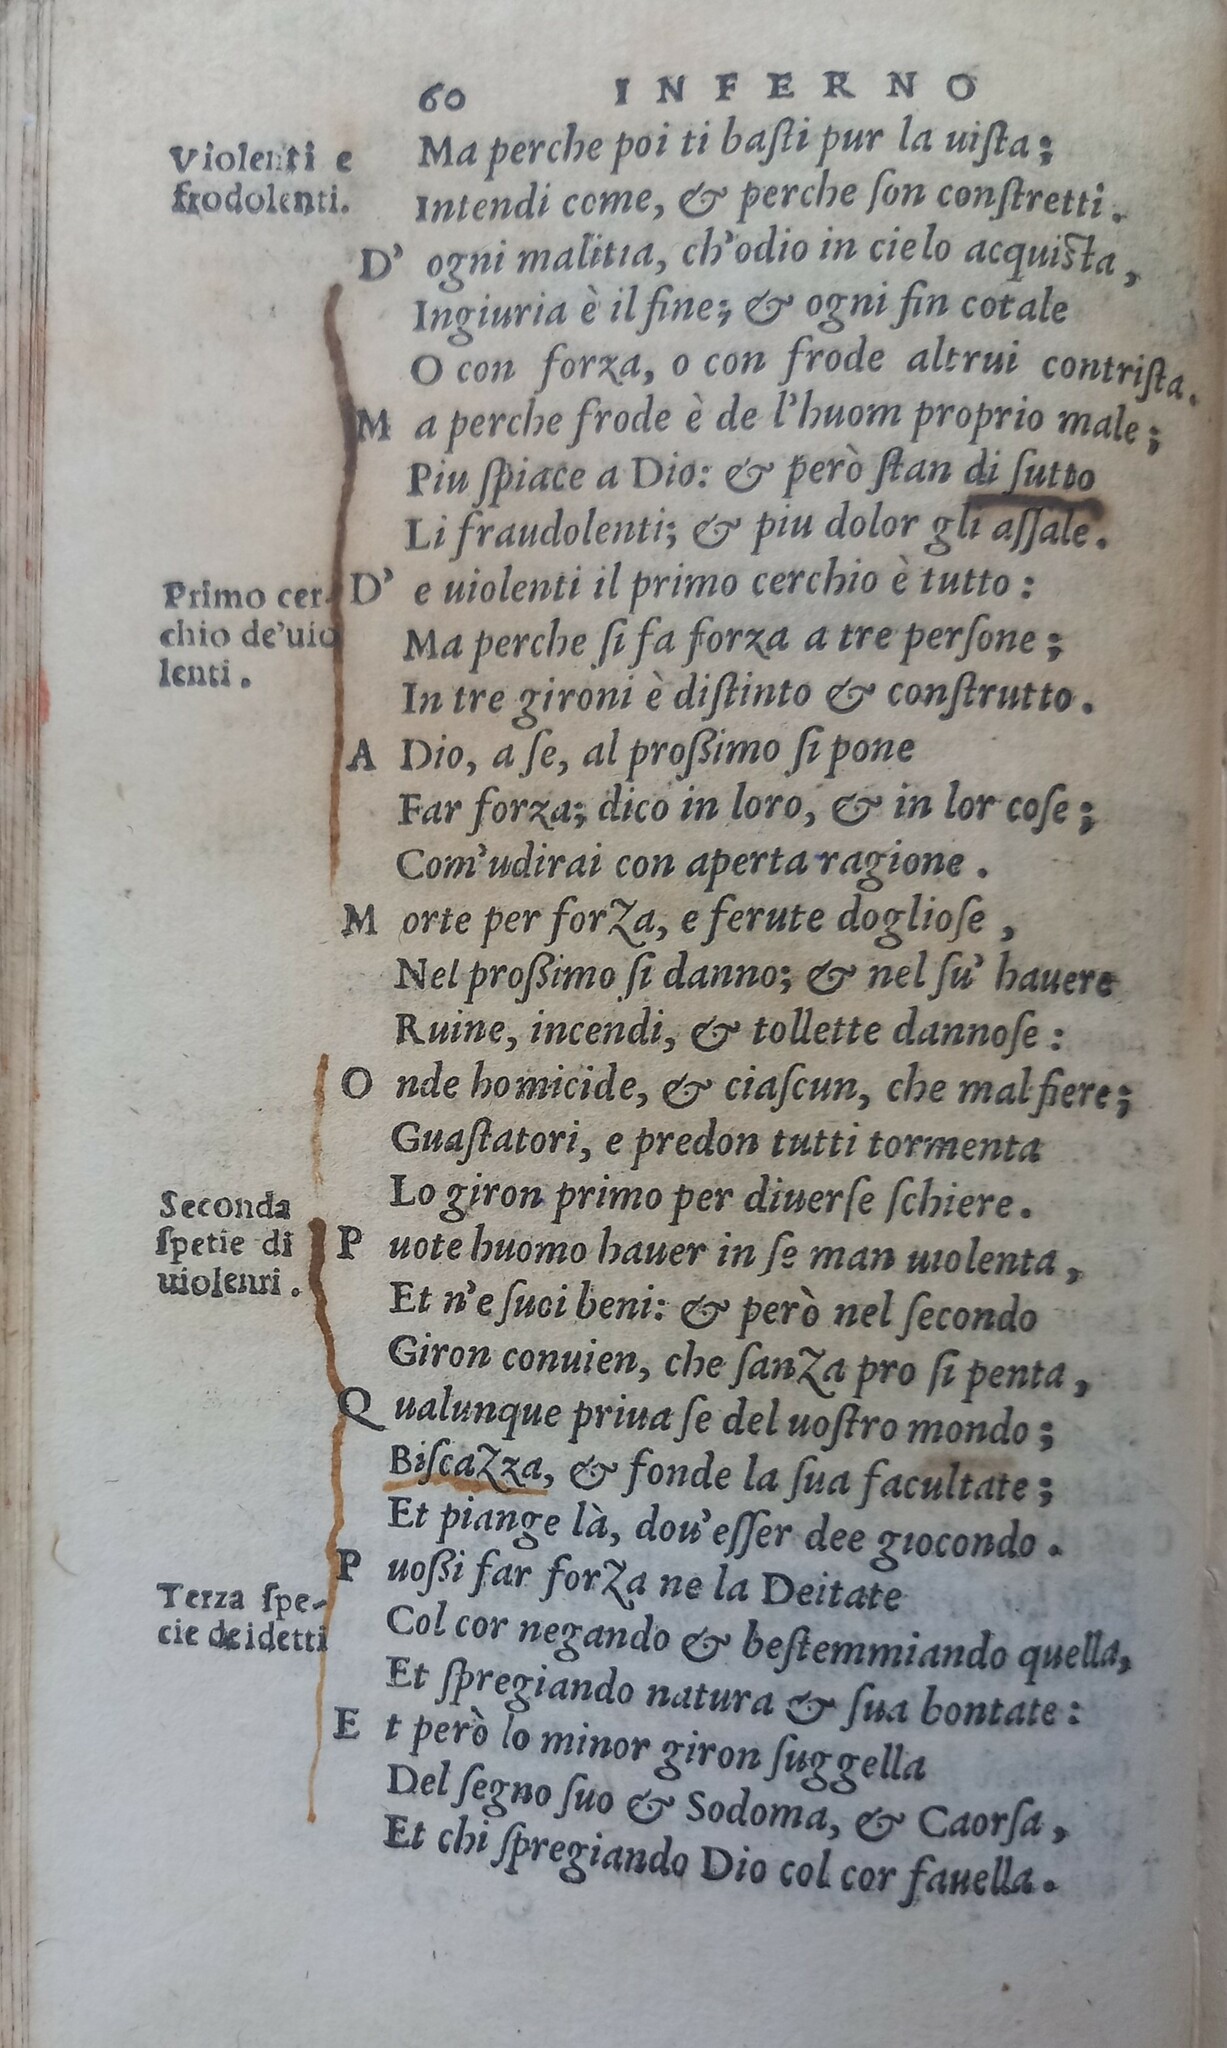 60 INFERNO
Violenti e
frodolenti.
Ma perche poi ti baſti pur la uiſta;
Intendi come, & perche ſon conſtretti.
D' ogni malitia, ch'odio in cielo acquiſta,
Ingiuria è il fine; & ogni fin cotale
O con forza, o con frode altrui contriſta.
M a perche frode è de l'huom proprio male;
Piu ſpiace a Dio: & però ſtan di ſutto
Li fraudolenti; & piu dolor gli aſſale.
Primo cer-
chio de'uio
lenti.
D' e uiolenti il primo cerchio è tutto:
Ma perche ſi fa forza a tre perſone;
In tre gironi è diſtinto & conſtrutto.
A Dio, a ſe, al proßimo ſi pone
Far forza; dico in loro, & in lor coſe;
Com'udirai con aperta ragione.
M orte per forza, e ferute doglioſe,
Nel proßimo ſi danno; & nel ſu' hauere
Ruine, incendi, & tollette dannoſe:
O nde homicide, & ciaſcun, che mal fiere;
Guaſtatori, e predon tutti tormenta
Lo giron primo per diuerſe ſchiere.
Seconda
ſpetie di
uiolenri.
P uote huomo hauer in ſe man uiolenta,
Et n'e ſuoi beni: & però nel ſecondo
Giron conuien, che ſanza pro ſi penta,
Q ualunque priua ſe del uoſtro mondo;
Biſcazza, & fonde la ſua facultate;
Et piange là, dou'eſſer dee giocondo.
Terza ſpe-
cie deidetti
P uoßi far forza ne la Deitate
Col cor negando & beſtemmiando quella,
Et ſpregiando natura & ſua bontate:
E t però lo minor giron ſuggella
Del ſegno ſuo & Sodoma, & Caorſa,
Et chi ſpregiando Dio col cor fauella.